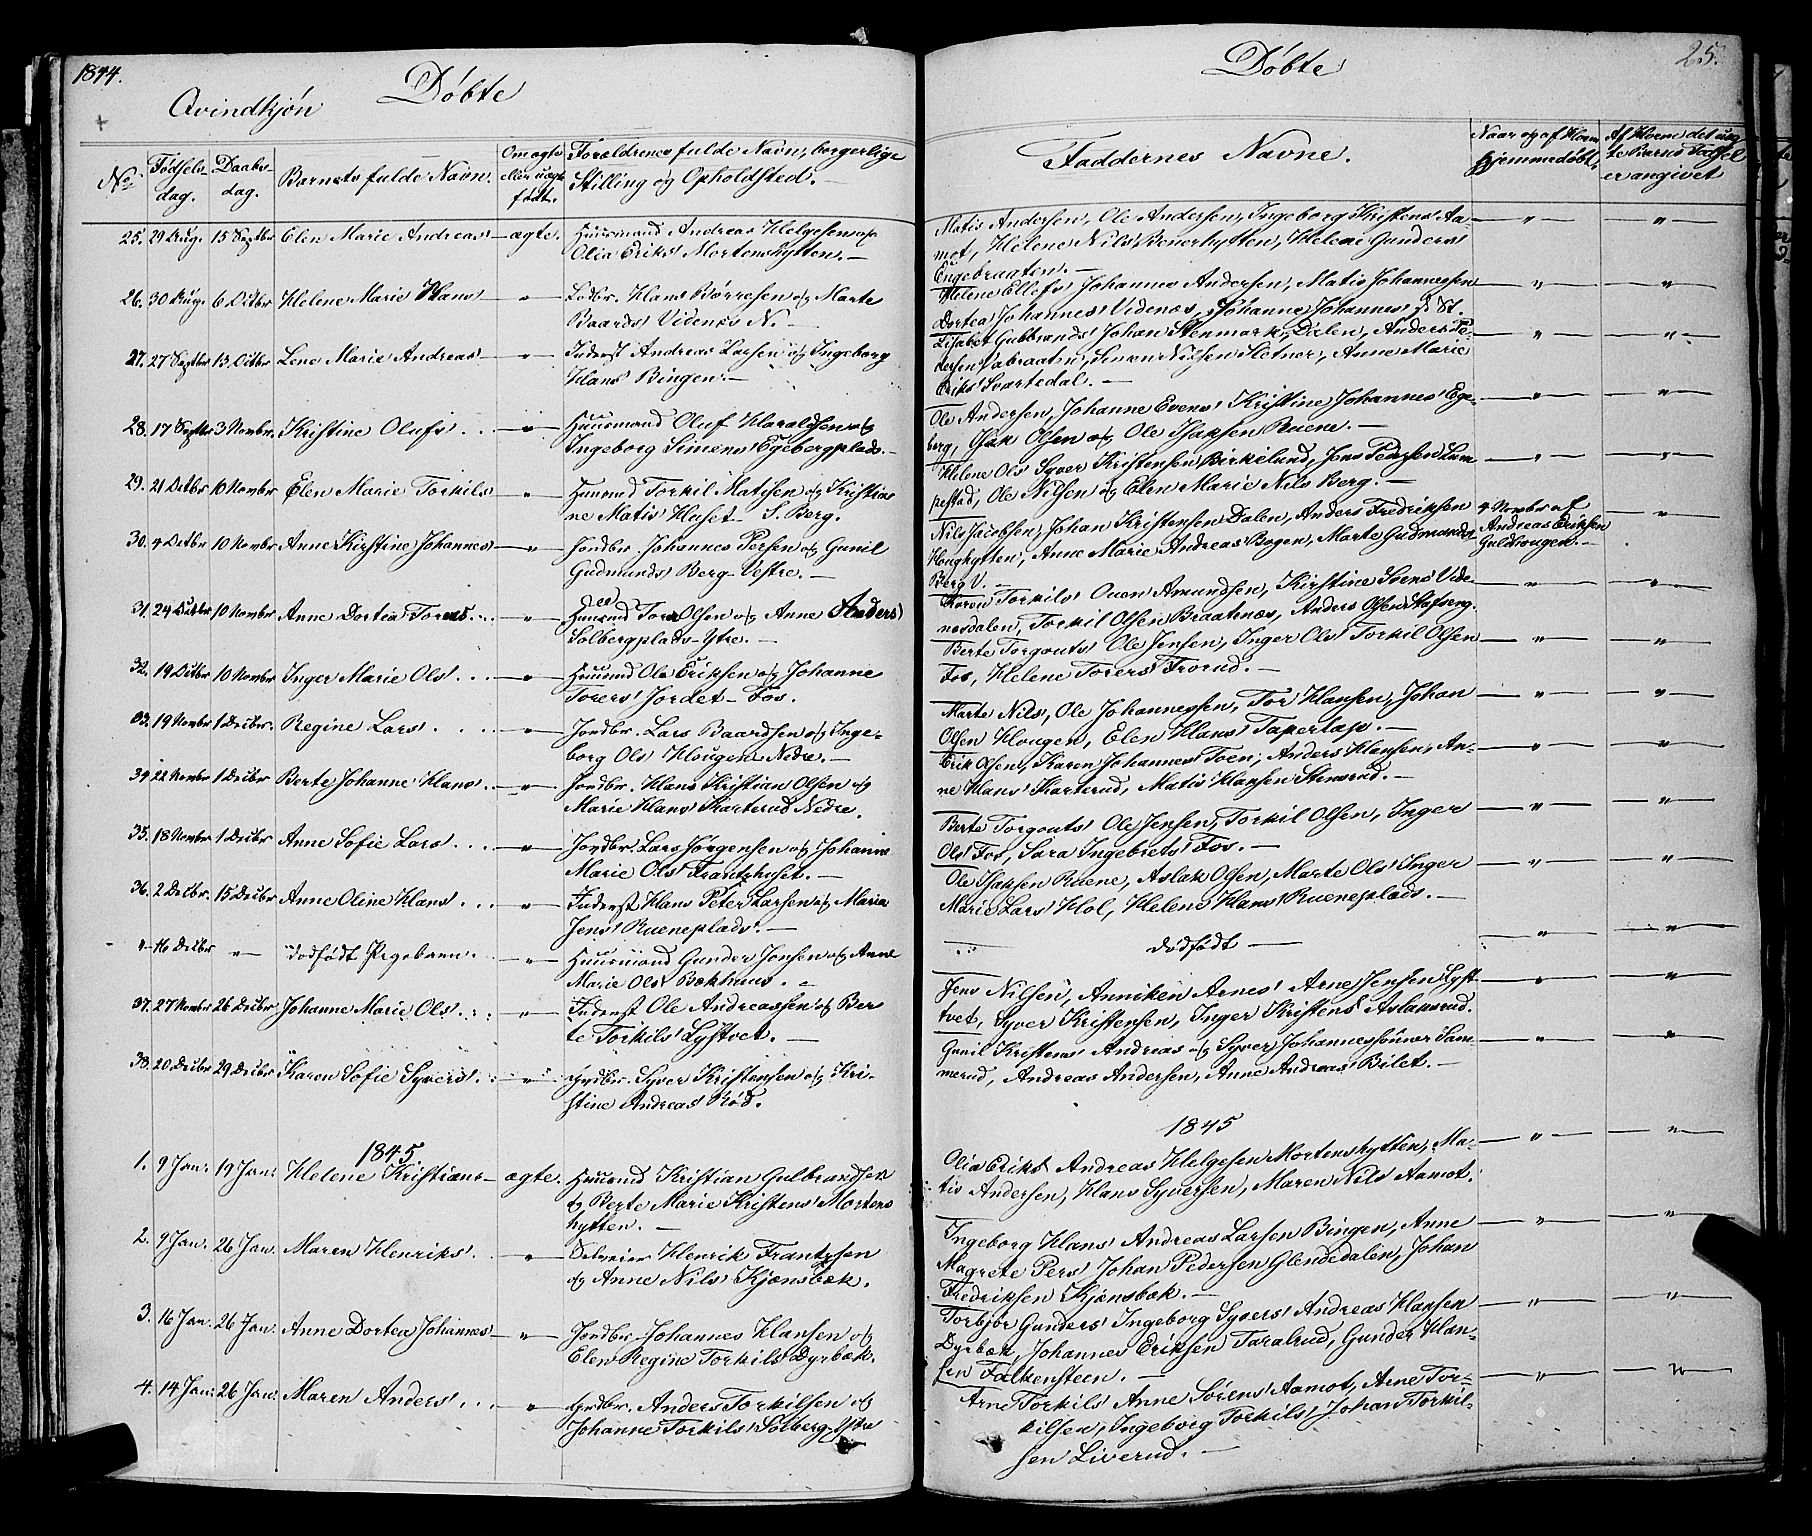 1844.
Døbte
Qvindkjøn
No
Fødsels-
dag.
Daabs-
dag.
Barnets fulde Navn.
Om ægte
eller uægte
født.
Forældrenes fulde Navn, borgerlige
Stilling og Opholdsted.
25. 29 Aug. 15 Septbr Elen Marie Andreas' ægte. Huusmand Andreas Helgesen og
Olia Eriks' Mortenshytten.
26. 30 Aug. 6 Octbr Helene Marie Hans' " Lodbr. Hans Børresen og Marte
Baards' Videnes N.
27. 27 Septbr 13 Octbr Lene Marie Andreas' " Inderst Andreas Larsen og Ingeborg
Hans' Bingen.
28. 17 Septbr 3 Novbr. Kristine Olufs' " Huusmand Oluf Haraldsen og
Ingeborg Simens' Egebergplads.
29. 21 Octbr 10 Novbr Elen Marie Torkils' " Huusmd Torkil Matisen og Kristia-
ne Matis' Huset S. Berg.
30. 4 Octbr 10 Novbr Anne Kirstine Johannes' " Jordbr. Johannes Persen og Gunil
Gudmunds' Berg Vestre.
31. 24 Octbr 10 Novbr Anne Dortea Tores' " Huusmd Tore Olsen og Anne Anders'
Solbergplads Ytre.
32. 19 Octbr 10 Novbr Inger Marie Ols' " Huusmd Ole Eriksen og Johanne
Torers' Jordet Fos.
33. 19 Novbr 1 Decbr. Regine Lars' " Jordbr. Lars Baardsen og Inge-
borg Ols' Hougen Nedre.
34. 22 Novbr 1 Decbr Berte Johanne Hans' " Jordbr. Hans Kristian Olsen og
Marie Hans' Skarterud Nedre.
35. 18 Novbr 1 Decbr Anne Sofie Lars' " Jordbr. Lars Jørgensen og Johanne
Marie Ols' Frantzhuset.
36. 2 Decbr. 15 Decbr Anne Oline Hans' " Inderst Hans Peter Larsen og Maria
Jens' Rueneplads.
" 16 Decbr " dødfødt Pigebarn " Huusmand Gunder Jonsen og Anne
Marie Ols' Bækhuus.
37. 27 Novbr 26 Decbr Johanne Marie Ols' " Inderst Ole Andreassen og Ber-
te Torkils' Lystvet.
38. 20 Decbr 29 Decbr Karen Sofie Syvers' " Grdbr. Syver Kristensen og Kri-
stine Andreas' Rød.
1845
1. 9 Jan. 19 Jan. Helene Kristians' ægte. Huusmd Kristian Gulbrandsen
og Berte Marie Kristens' Mortens
hytten.
2. 9 Jan. 26 Jan. Maren Henriks' " Henrik Frantzsen
og Anne Nils' Kjønsbæk.
3. 16 Jan. 26 Jan. Anne Dortea Johannes' " Jordbr Johannes Hansen og
Elen Regine Torkils' Dyrbæk.
4. 14 Jan. 26 Jan. Maren Anders' " Grdbr. Anders Torkilsen og
Johanne Torkils' Solberg Ytre
Døbte
25.
Faddernes Navne.
Naar og af Hvem
hjemmedøbt.
Af Hvem det uæg-
te Barns Fødsel
er angivet
Matis Andersen, Ole Andersen, Ingeborg Kristens' Aa-
mot, Helene Nils' Benerhytten, Helene Gunders'
Engebraaten.
Helene Ellefs' Johannes Andersen, Matis Johannessen
Dortea Johannes' Videnes, Johanne Johannes' St.
Lisabet Gulbrands' Johan Stenmark, Dalen, Anders Pe-
dersen Vabraaten, Simen Nilsen Sletner, Anne Marie
Eriks' Svartedal.
Ole Andersen, Johanne Evens' Kristine Johannes' Ege-
berg, Isak Olsen og Ole Isaksen Ruene.
Helene Ols' Syver Kristensen Birkelund, Jens Pedersen Lam-
pestad, Ole Nilsen og Elen Marie Nils' Berg.
Nils Jacobsen, Johan Kristensen Dalen, Anders Fredriksen
Houghytten, Anne Marie Andreas' Bogen, Marte Gudmunds'
Berg V.
4 Novbr af
Andreas Eriksen
Guldhougen.
Karen Torkils' Ouen Amundsen, Kirstine Svens' Vide-
nesdalen, Torkil Olsen Braatenes, Anders Olsen Stofserg.
Berte Torgouts' Ole Jensen, Inger Ols' Torkil Olsen
Fos, Helene Torers' Frorud.
Marte Nils', Ole Johannessen, Tor Hansen, Johan
Olsen Hougen, Elen Hans' Taperlap.
Erik Olsen, Karen Johannes' Toen, Anders Hansen, An-
ne Hans' Skarterud, Matis Hansen Stensrud.
Berte Torgouts' Ole Jensen, Torkil Olsen, Inger
Ols' Fos, Sara Ingebrets' Fos.
Ole Isaksen Ruene, Aslak Olsen, Marte Ols' Inger
Marie Lars' Hol, Helene Hans' Rueneplads.
dødfødt
Jens Nilsen, Anniken Arnes' Arne Jensen Lyst-
tvet, Syver Kristensen, Inger Kristens' Aslaksrud.
Gunil Kristens' Andreas og Syver Johannessønner Sam-
merud, Andreas Andersen, Anne Andreas' Bilet.
1845
Olia Eriks' Andreas Helgesen Mortenshytten, Ma-
tis Andersen, Hans Syversen, Maren Nils' Aamot.
Ingeborg Hans' Andreas Larsen Bingen, Anne
Magrete Pers' Johan Pedersen Glendedalen, Johan
Fredriksen Kjønsbæk.
Torbjør Gunders' Ingeborg Syvers' Andreas Hansen
Dyrbæk, Johannes Eriksen Taralrud, Gunder Han-
sen Falkensteen.
Arne Torkils' Anne Sørens' Aamot, Arne Tor-
kilsen, Ingeborg Torkils' Johan Torkil-
sen Liverud.